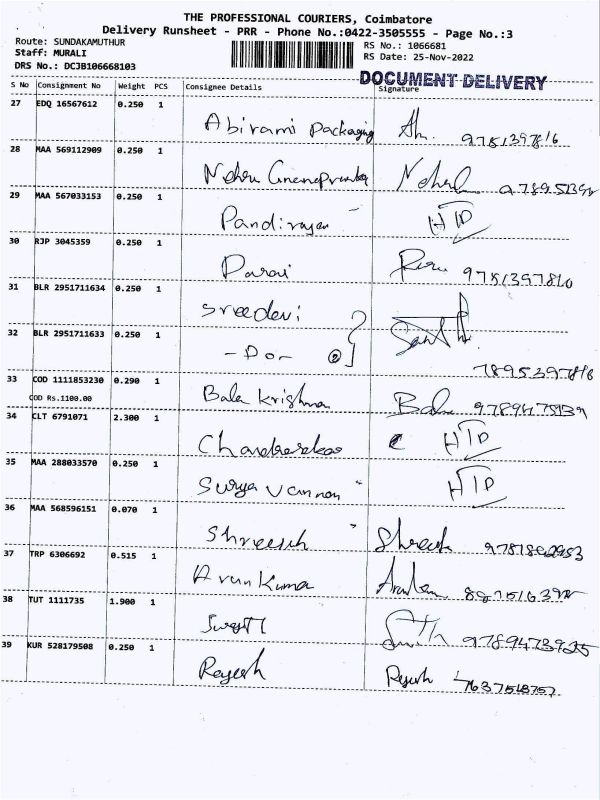 THE PROFESSIONAL COURIERS, Coimbatore
Delivery Runsheet - PRR - Phone No.:0422-3505555 - Page No.:3
Route: SUNDAKAMUTHUR RS No.: 1066681
Staff: MURALI RS Date: 25-Nov-2022
DRS No.: DCJB106668103
DOCUMENT DELIVERY
S No Consignment No Weight PCS Consignee Details Signature
27 EDQ 16567612 0.250 1
Abirami Packaging
28 MAA 569112909 0.250 1
Nehru
29 MAA 567033153 0.250 1
Pandirajan HTD
30 RJP 3045359 0.250 1
9781397810
31 BLR 2951711634 0.250 1
Sreedevi
32 BLR 2951711633 0.250 1
- Do - 2
7895397816
33 COD 1111853230 0.290 1
COD Rs.1100.00
Bala Krishna Bala
34 CLT 6791071 2.300 1
Chandrasekar HTD
35 MAA 288033570 0.250 1
Surya Vannan HTD
36 MAA 568596151 0.070 1
Shreesh Shreesh
37 TRP 6306692 0.515 1
Arun Kumar
38 TUT 1111735 1.900 1
9789473925
39 KUR 528179508 0.250 1
Rajesh Rajesh 7637548757